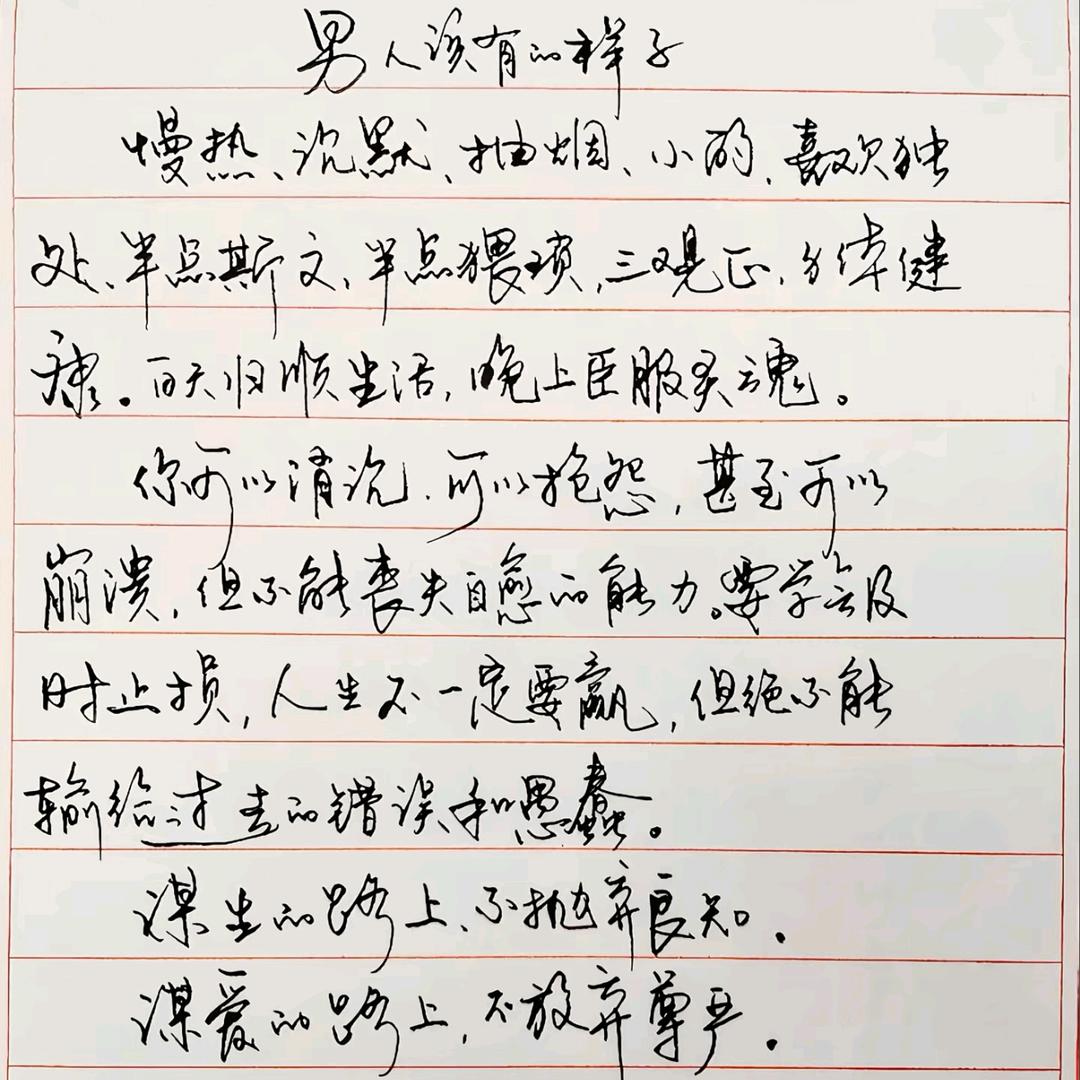 男人该有的样子
慢热、沉默、抽烟、小酌、喜欢独
处、半点斯文、半点猥琐,三观正,身体健
康。白天归顺生活,晚上臣服灵魂。
你可以消沉,可以抱怨,甚至可以
崩溃,但不能丧失自愈的能力。要学会及
时止损,人生不一定要赢,但绝不能
输给过去的错误和愚蠢。
谋生的路上、不抛弃良知。
谋爱的路上,不放弃尊严。